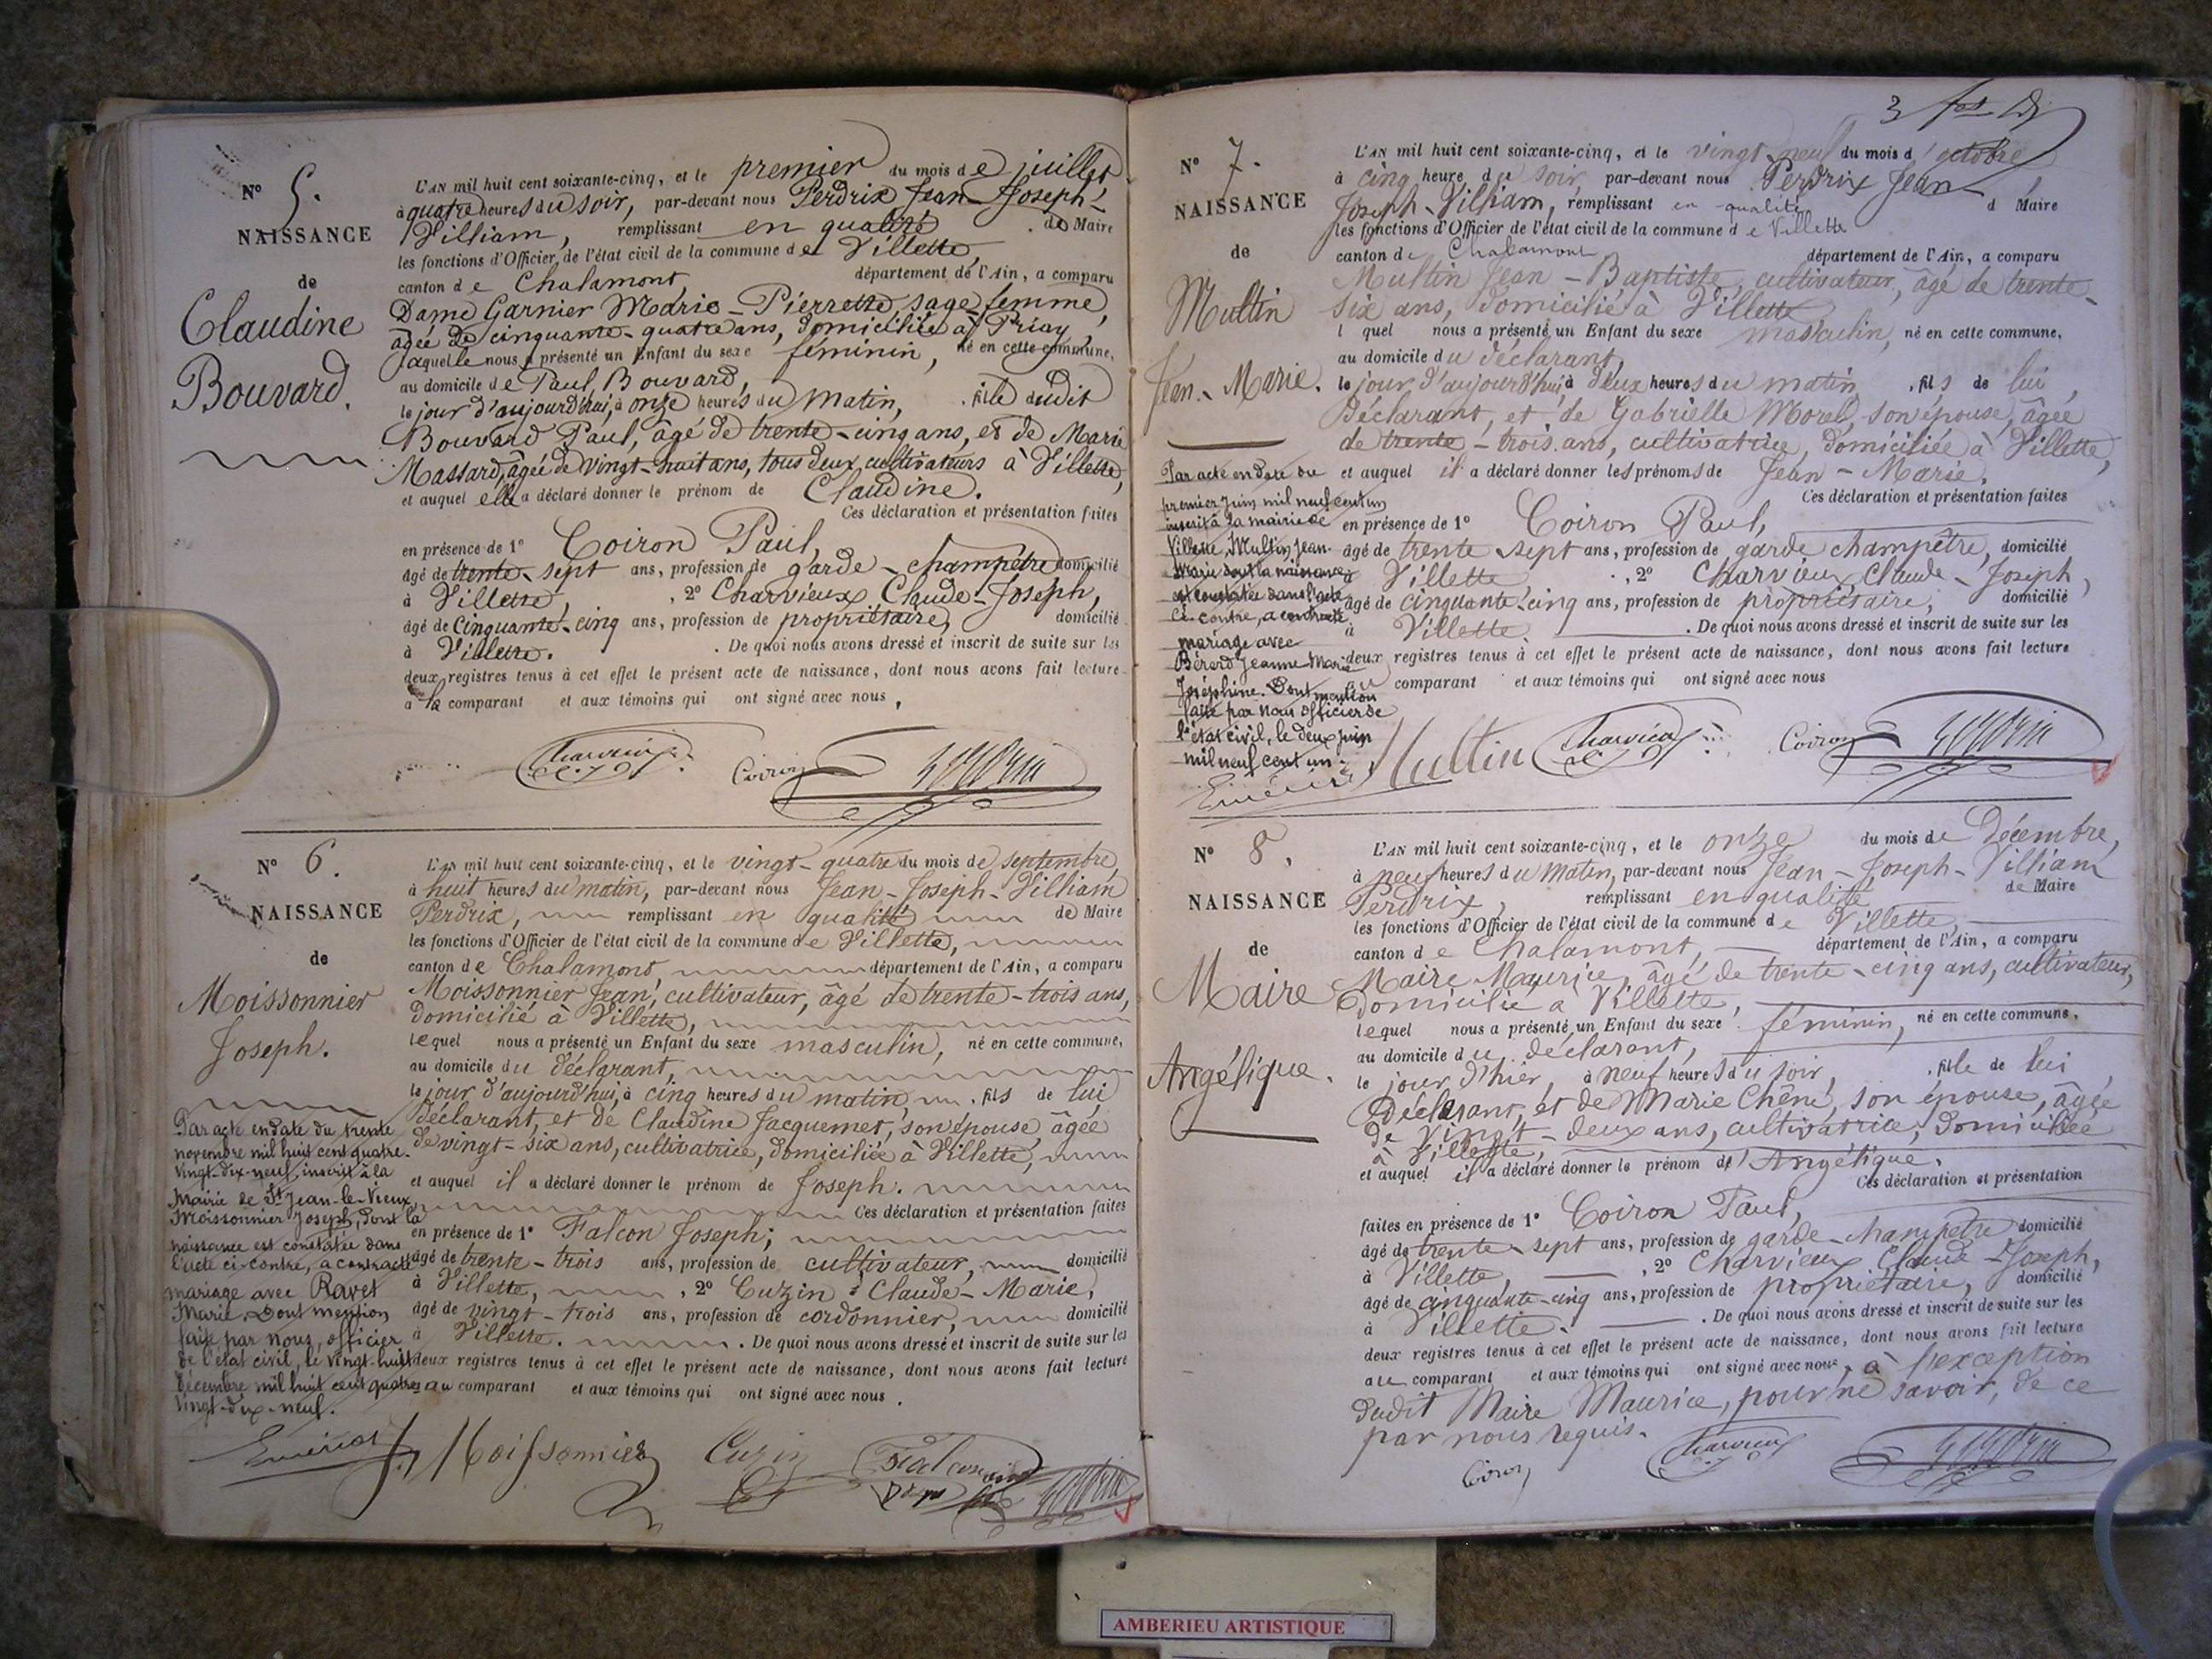 N° 5.
NAISSANCE
de
Claudine
Bouvard.
L'AN mil huit cent soixante-cinq, et le premier du mois de juillet
à quatre heures du soir, par-devant nous Perdrix Jean-Joseph-
Villiam, remplissant en qualité de Maire
les fonctions d'Officier de l'état civil de la commune de Villette,
canton de Chalamont, département de l'Ain, a comparu
Dame Garnier Marie-Pierrette, sage-femme,
âgée de cinquante-quatre ans, domiciliée à Priay,
laquelle nous a présenté un Enfant du sexe féminin, né en cette commune,
au domicile de Paul Bouvard,
le jour d'aujourd'hui, à onze heures du matin, fille dudit
Bouvard Paul, âgé de trente-cinq ans, et de Marie
Massard, âgée de vingt-huit ans, tous deux cultivateurs à Villette,
et auquel elle a déclaré donner le prénom de Claudine.
Ces déclaration et présentation faites
en présence de 1° Coiron Paul,
âgé de trente-sept ans, profession de garde-champêtre domicilié
à Villette, 2° Charvieux Claude-Joseph,
âgé de cinquante-cinq ans, profession de propriétaire, domicilié
à Villette. De quoi nous avons dressé et inscrit de suite sur les
deux registres tenus à cet effet le présent acte de naissance, dont nous avons fait lecture
à la comparant et aux témoins qui ont signé avec nous,
Charvieux Coiron
N° 6.
NAISSANCE
de
Moissonnier
Joseph.
L'AN mil huit cent soixante-cinq, et le vingt-quatre du mois de septembre,
à huit heures du matin, par-devant nous Jean-Joseph-Villiam
Perdrix, remplissant en qualité de Maire
les fonctions d'Officier de l'état civil de la commune de Villette,
canton de Chalamont, département de l'Ain, a comparu
Moissonnier Jean, cultivateur, âgé de trente-trois ans,
domicilié à Villette,
lequel nous a présenté un Enfant du sexe masculin, né en cette commune,
au domicile du déclarant,
le jour d'aujourd'hui, à cinq heures du matin, fils de lui
déclarant, et de Claudine Jacquemet, son épouse, âgée
de vingt-six ans, cultivatrice, domiciliée à Villette,
et auquel il a déclaré donner le prénom de Joseph.
Ces déclaration et présentation faites
en présence de 1° Falcon Joseph,
âgé de trente-trois ans, profession de cultivateur, domicilié
à Villette, 2° Cuzin Claude-Marie,
âgé de vingt-trois ans, profession de cordonnier, domicilié
à Villette. De quoi nous avons dressé et inscrit de suite sur les
deux registres tenus à cet effet le présent acte de naissance, dont nous avons fait lecture
au comparant et aux témoins qui ont signé avec nous.
Par acte en date du trente
novembre mil huit cent quatre-
vingt-dix-neuf, inscrit à la
Mairie de St Jean-le-Vieux,
Moissonnier Joseph, dont la
naissance est constatée dans
l'acte ci-contre, a contracté
mariage avec Ravet
Marie. Dont mention
faite par nous, officier
de l'état civil, le vingt-huit
décembre mil huit cent quatre
vingt-dix-neuf.
Moissonnier Cuzin Falcon
N° 7.
NAISSANCE
de
Multin
Jean-Marie.
L'AN mil huit cent soixante-cinq, et le vingt-neuf du mois d'octobre
à cinq heure du soir, par-devant nous Perdrix Jean-
Joseph-Villiam, remplissant en qualité d Maire
les fonctions d'Officier de l'état civil de la commune de Villette
canton de Chalamont département de l'Ain, a comparu
Multin Jean-Baptiste, cultivateur, âgé de trente-
six ans, domicilié à Villette,
l quel nous a présenté un Enfant du sexe masculin, né en cette commune,
au domicile du déclarant,
le jour d'aujourd'hui, à deux heures du matin, fils de lui
déclarant, et de Gabrielle Morel, son épouse, âgée
de trente-trois ans, cultivatrice, domiciliée à Villette,
et auquel il a déclaré donner les prénoms de Jean-Marie.
Ces déclaration et présentation faites
en présence de 1° Coiron Paul,
âgé de trente-sept ans, profession de garde champêtre, domicilié
à Villette, 2° Charvieux Claude-Joseph,
âgé de cinquante-cinq ans, profession de propriétaire, domicilié
à Villette. De quoi nous avons dressé et inscrit de suite sur les
deux registres tenus à cet effet le présent acte de naissance, dont nous avons fait lecture
au comparant et aux témoins qui ont signé avec nous
Par acte en date du
premier juin mil neuf cent un
inscrit à la mairie de
Villette, Multin Jean-
Marie dont la naissance
est constatée dans l'acte
ci-contre, a contracté
mariage avec
Bérard Jeanne-Marie
Joséphine. Dont mention
faite par nous officier de
l'état civil, le deux juin
mil neuf cent un.
Multin Charvieux Coiron
N° 8.
NAISSANCE
de
Maire
Angélique.
L'AN mil huit cent soixante-cinq, et le onze du mois de Décembre,
à neuf heures du matin, par-devant nous Jean-Joseph-Villiam
Perdrix, remplissant en qualité de Maire
les fonctions d'Officier de l'état civil de la commune de Villette,
canton de Chalamont, département de l'Ain, a comparu
Maire Maurice, âgé de trente-cinq ans, cultivateur,
domicilié à Villette,
lequel nous a présenté un Enfant du sexe féminin, né en cette commune,
au domicile du déclarant,
le jour d'hier, à neuf heures du soir, fille de lui
déclarant, et de Marie Chêne, son épouse, âgée
de vingt-deux ans, cultivatrice, domiciliée
à Villette,
et auquel il a déclaré donner le prénom d'Angélique.
Ces déclaration et présentation
faites en présence de 1° Coiron Paul,
âgé de trente-sept ans, profession de garde-champêtre domicilié
à Villette, 2° Charvieux Claude-Joseph,
âgé de cinquante-cinq ans, profession de propriétaire, domicilié
à Villette. De quoi nous avons dressé et inscrit de suite sur les
deux registres tenus à cet effet le présent acte de naissance, dont nous avons fait lecture
au comparant et aux témoins qui ont signé avec nous, à l'exception
dudit Maire Maurice, pour ne savoir, de ce
par nous requis.
Coiron Charvieux
AMBERIEU ARTISTIQUE